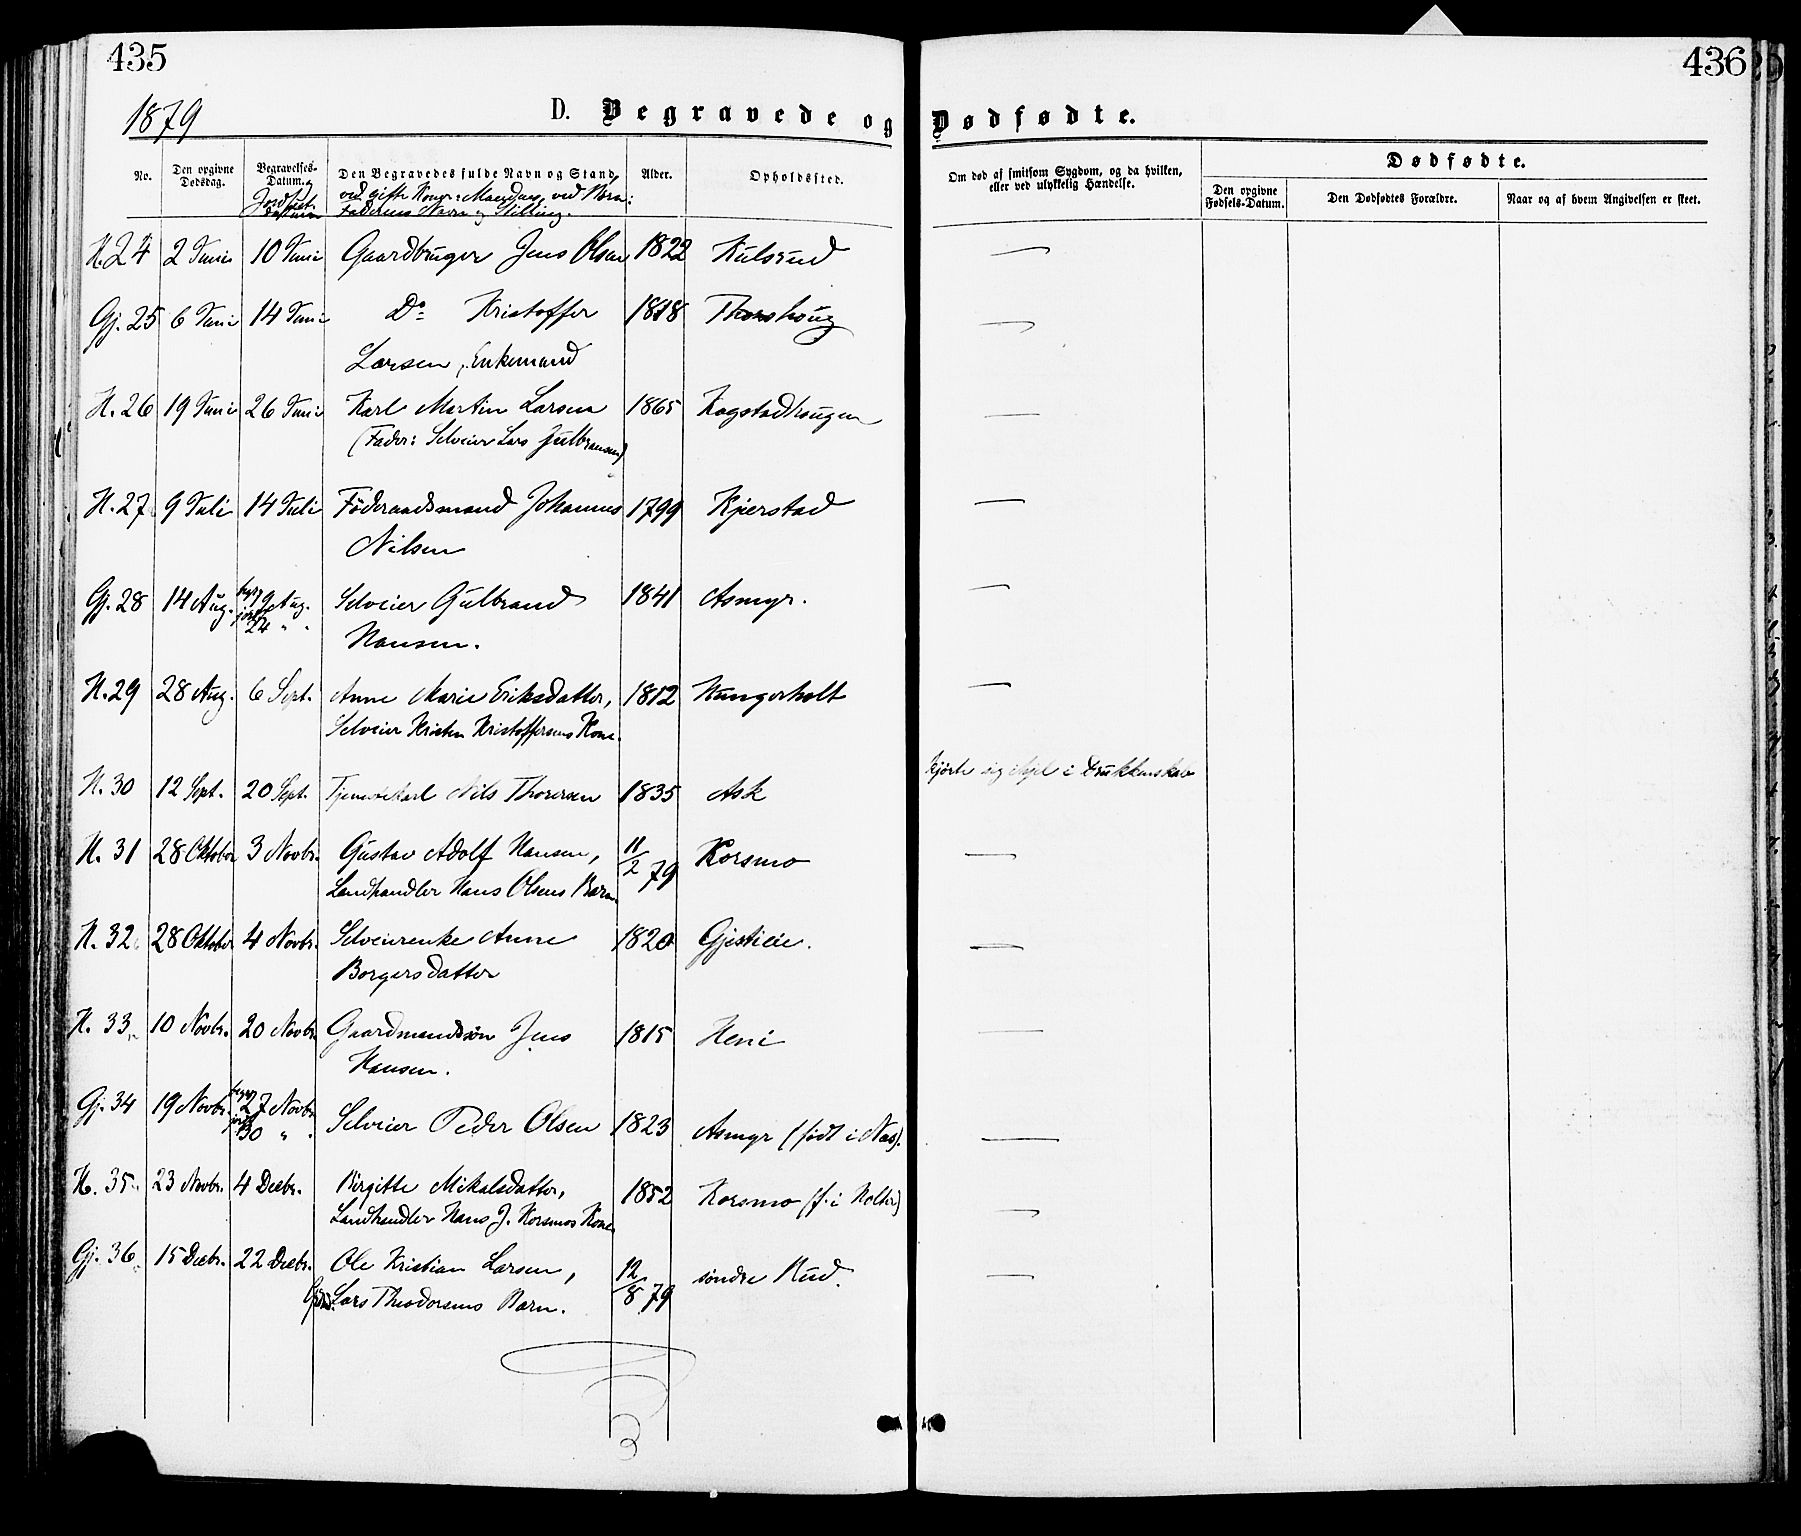 435
436
1879
D. Begravede og Dødfødte.
No.
Den opgivne Dødsdag.
Begravelses-Datum.
Jordfst. Datum
Den Begravedes fulde Navn og Stand
ved gifte Koner: Mandens, ved Børn:
Faderens Navn og Stilling.
Alder.
Opholdssted.
Om død af smitsom Sygdom, og da hvilken, eller ved ulykkelig Hændelse.
Dødfødte.
Den opgivne Fødsels-Datum.
Den Dødfødtes Forældre.
Naar og af hvem Angivelsen er skeet.
H. 24 2 Juni 10 Juni Gaardbruger Jens Olsen 1822 Kulsrud —
Gj. 25 6 Juni 14 Juni Do = Kristoffer 1818 Thorshoug —
Larsen, Enkemand
H. 26 19 Juni 26 Juni Karl Martin Larsen 1865 Kogstadhougen —
(Fader: Selveier Lars Gulbransen)
H. 27 9 Juli 14 Juli Föderaadsmand Johannes 1799 Kjerstad —
Nilsen
Gj. 28 14 Aug. begr 19 Aug. Selveier Gulbrand 1841 Asmyr. —
jordf 24 " " Hansen.
H. 29 28 Aug. 6 Sept. Anne Marie Eriksdatter, 1812 Hungerholt —
Selveier Kristen Kristoffersens Kone.
H. 30 12 Sept. 20 Sept. Tjenestekarl Nils Thoresen 1835 Ask kjörte sig ihjel i Drukkenskab
H. 31 28 Oktober 3 Novbr. Gustav Adolf Hansen, 11/2 79 Korsmo —
Landhandler Hans Olsens Barn
H. 32 28 Oktober 4 Novbr. Selveierenke Anne 1820 Gjestieie. —
Borgersdatter
H. 33 10 Novbr. 20 Novbr. Gaardmandssön Jens 1815 Heni —
Hansen.
Gj. 34 19 Novbr. begr 27 Novbr. Selveier Peder Olsen 1823 Asmyr (født i Næs). —
jordf 30 " "
H. 35 23 Novbr. 4 Decbr. Birgitte Mikalsdatter, 1852 Korsmo (f. i Holter) —
Landhandler Hans J. Korsmos Kone
Gj. 36 15 Decbr. 22 Decbr. Ole Kristian Larsen, 12/8 79 søndre Rud. —
Lars Theodorsens Barn.